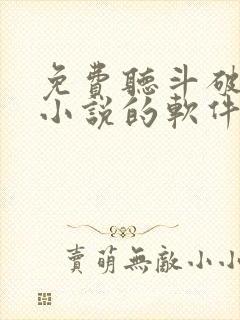 免費聽斗破
小說的軟件
賣萌無敵小小